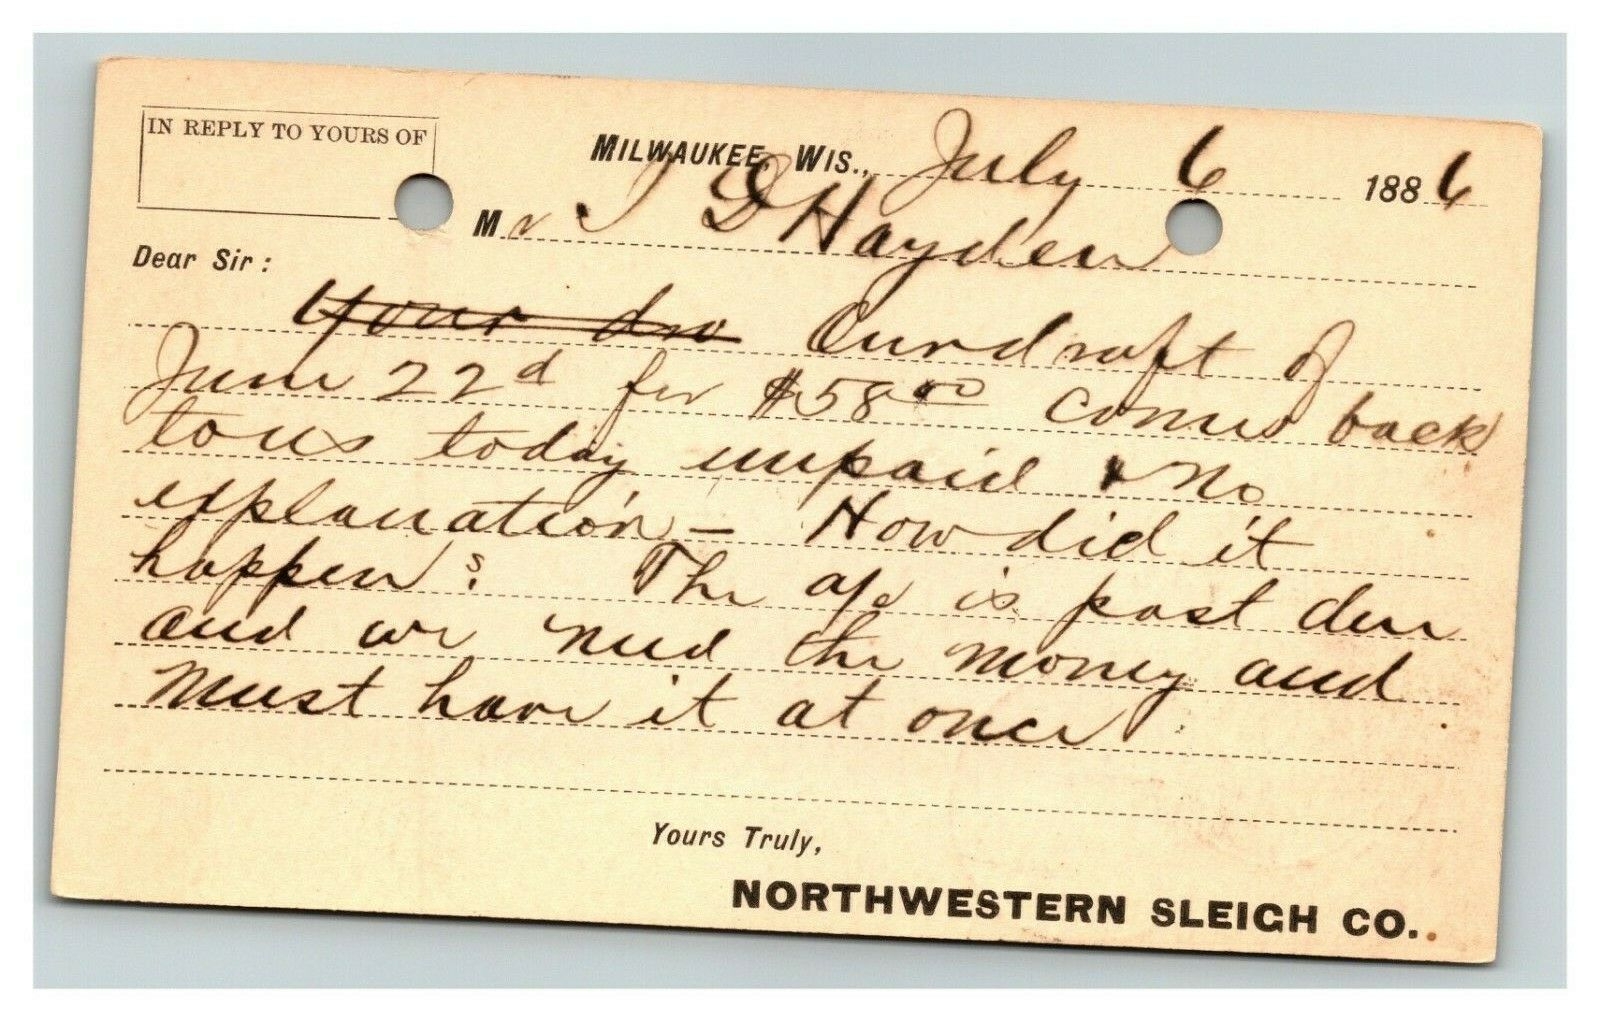 IN REPLY TO YOURS OF
MILWAUKEE, WIS., July 6 1886
Mr J D Hayden
Dear Sir:
Your dra Our draft of
June 22d for $58.00 comes back
to us today unpaid & no
explanation - How did it
happen? The a/c is past due
and we need the money and
must have it at once.
Yours Truly,
NORTHWESTERN SLEIGH CO.